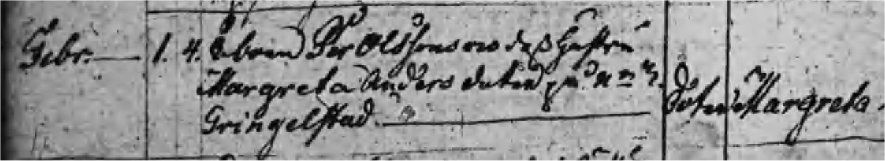 Febr. 1. 4. Åboen Per Olssons o. dess Hustru
Margreta Anders dotter på
Gringelstad. Dotter Margreta.